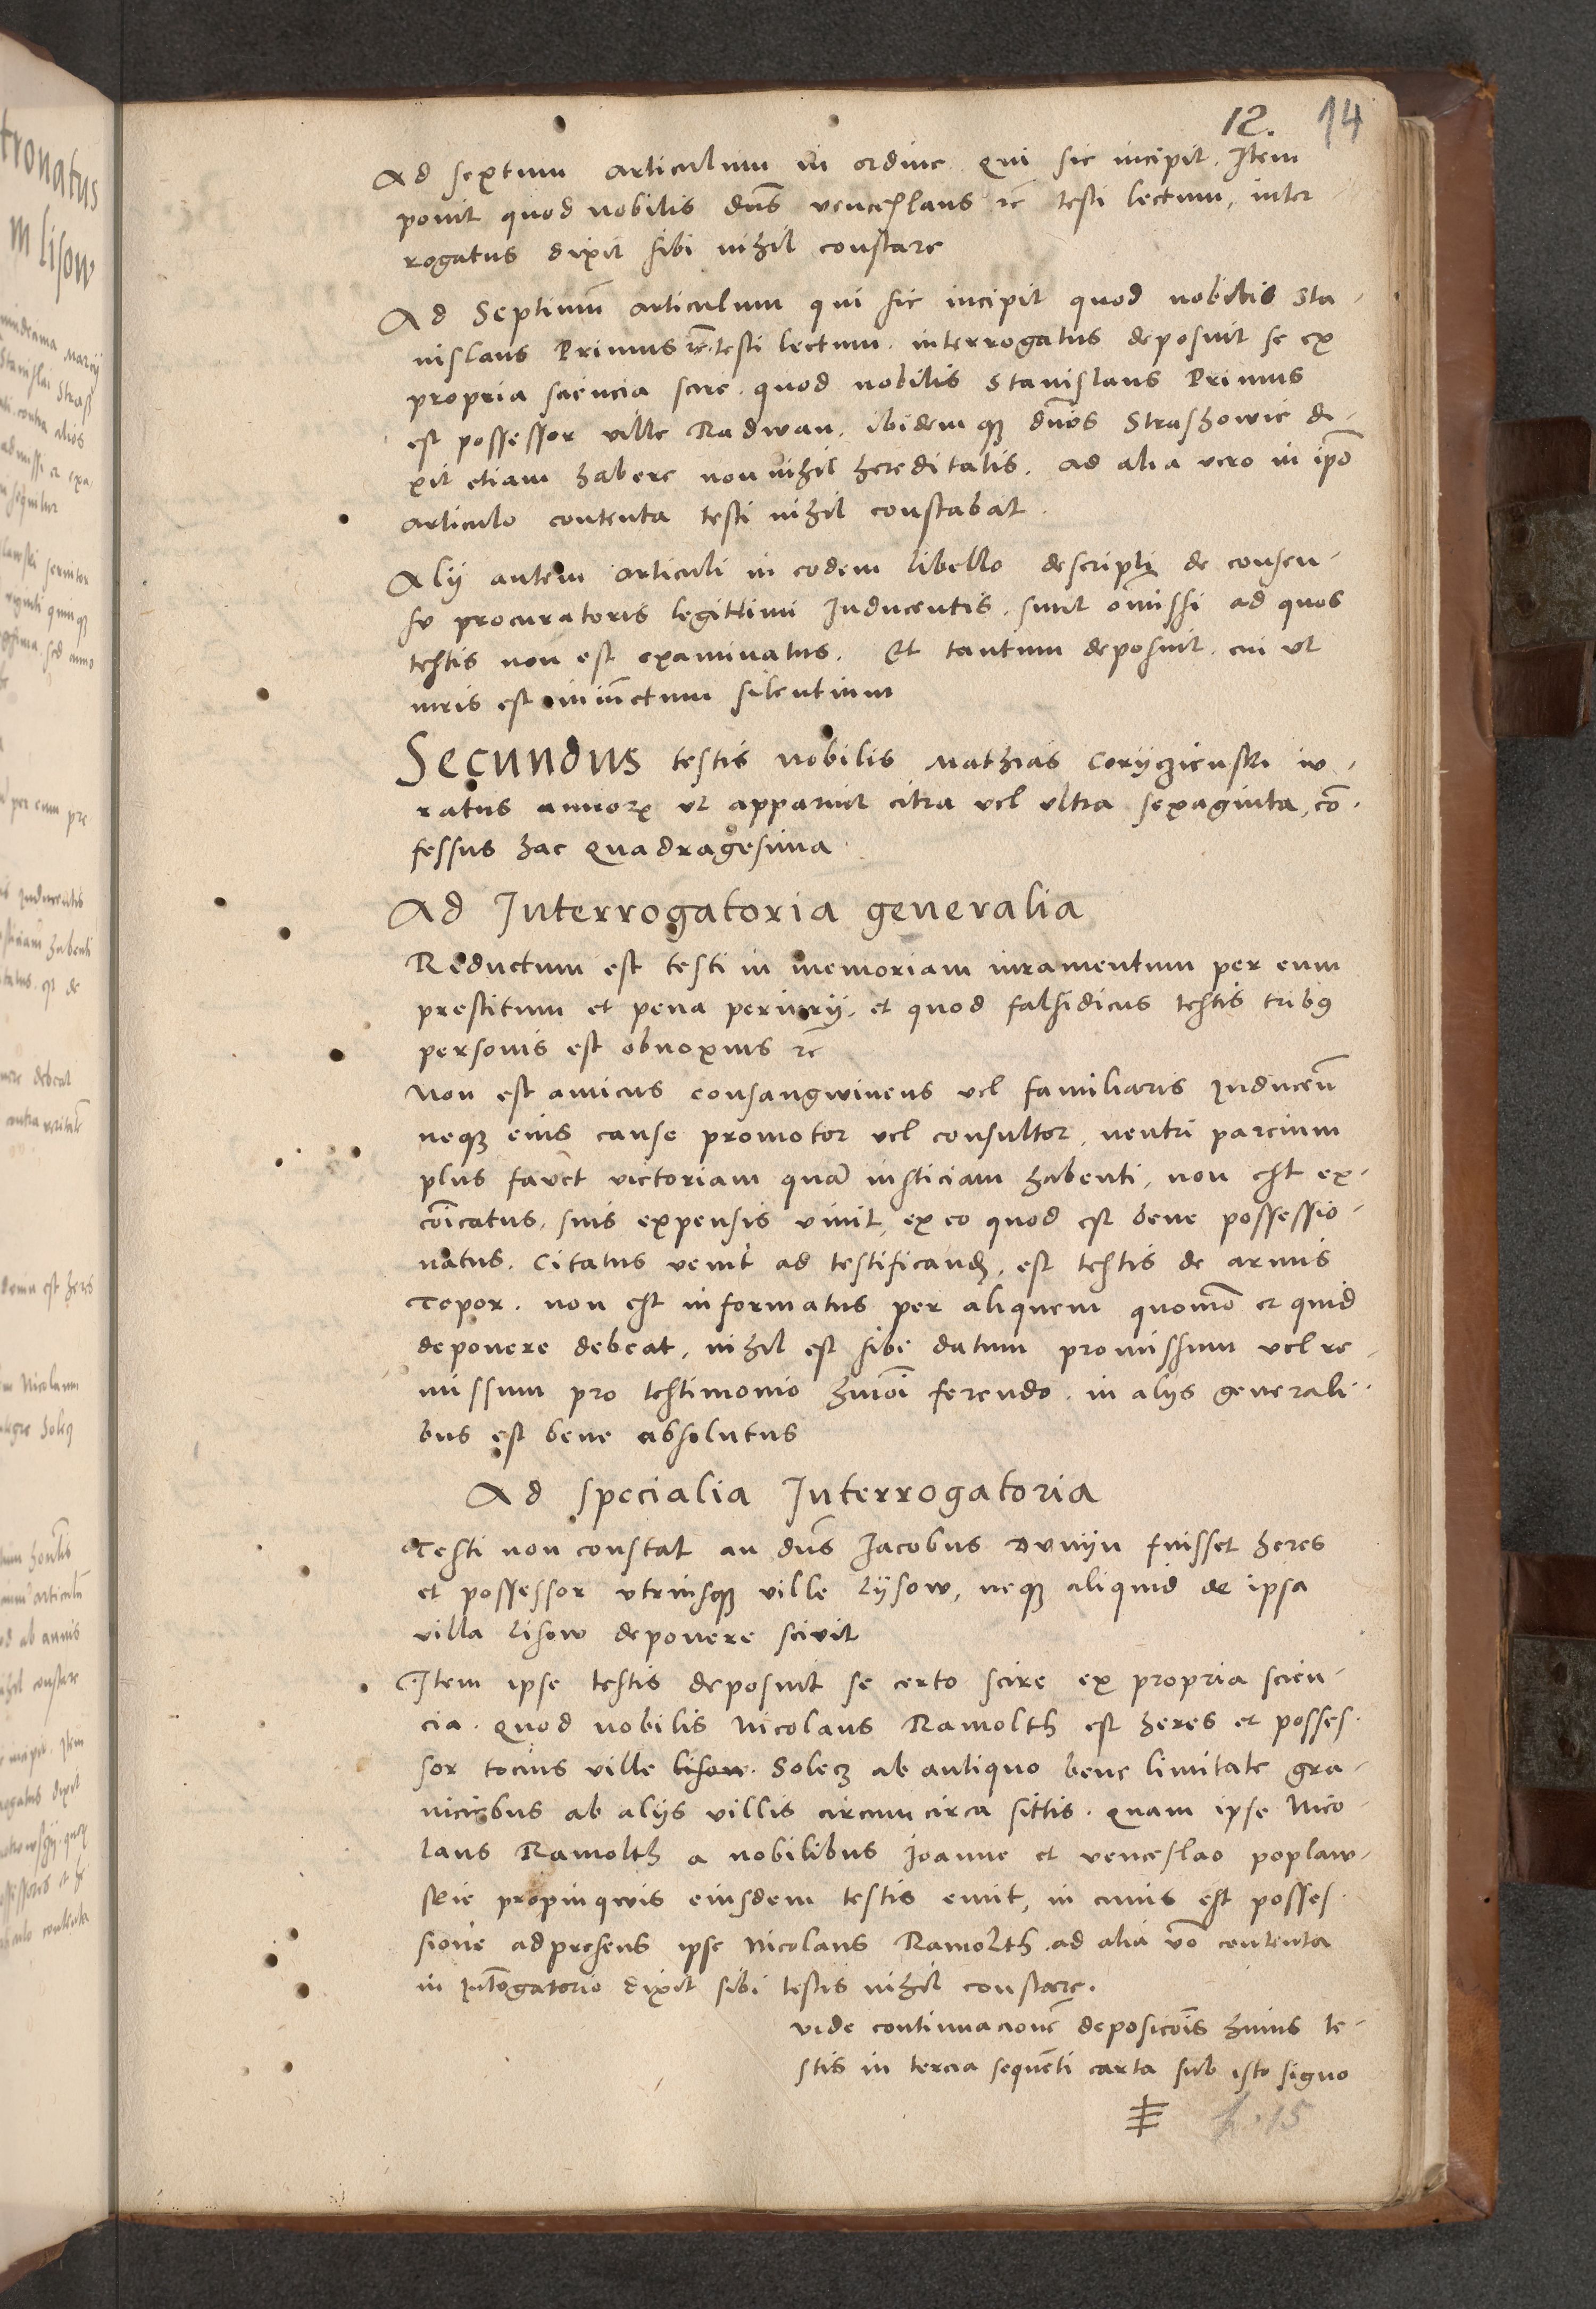 12. 14
Ad sextum articulum in ordine qui sic incipit. Item
ponit quod nobilis dns̄ venceslaus rc̄ testi lectum, inter-
rogatus dixit sibi nihil constare
Ad Septimū articulum qui sic incipit quod nobilis Sta-
nislaus Primus rc̄. testi lectum. interrogatus deposuit se ex
propria sciencia scire. quod nobilis Stanislaus Primus
est possessor ville Radwan. ibidemqꝫ dnōs Strashowie di-
xit etiam habere nonnihil hereditatis. Ad alia vero in ipō
articulo contenta testi nihil constabat.
Alij autem articuli in eodem libello descripti de consen-
su procuratoris legittimi Inducentis. sunt omissi ad quos
testis non est examinatus. Et tantum deposuit. cui vt
iuris est iniūctum silentium
Secundus testis nobilis Mathias Coryczienski iu-
ratus annorꝝ vt apparuit citra vel vltra sexaginta, cō-
fessus hac Quadragesima
Ad Interrogatoria generalia
Reductum est testi in memoriam iuramentum per eum
prestitum et pena periurij. et quod falsidicus testis tribꝰ
personis est obnoxius rc̄
Non est amicus consangwineus vel familiaris Inducen̄
neqꝫ eius cause promotor vel consultor, neutri parcium
plus favet victoriam quā iusticiam habenti, non est ex-
cōicatus, suis expensis viuit, ex eo quod est bene possessio-
natus. Citatus venit ad testificandꝫ, est testis de armis
Topor. non est informatus per aliquem quomō et quid
deponere debeat, nihil est sibi datum promissum vel re-
missum pro testimonio hmōi ferendo. in alijs generali-
bus est bene absolutus
Ad specialia Interrogatoria
Testi non constat an dns̄ Jacobus Dunyn fuisset heres
et possessor vtriusqꝫ ville Lysow, neqꝫ aliquid de ipsa
villa Lisow deponere scivit
Item ipse testis deposuit se certo scire ex propria scien-
cia. Quod nobilis Nicolaus Ramolth est heres et posses-
sor tocius ville lisow. Solecz ab antiquo bene limitate gra-
niciebus ab alijs villis circumcirca sittis. quam ipse Nico-
laus Ramolth a nobilibus Joanne et venceslao poplaw-
skie propinqwis eiusdem testis emit, in cuius est posses-
sione adpresens ipse Nicolaus Ramolth. ad alia vō contenta
in Intōgatorio dixit sibi testis nihil constare.
vide continuacionē deposicōis huius te-
stis in tercia sequēti carta sub isto signo
k. 15